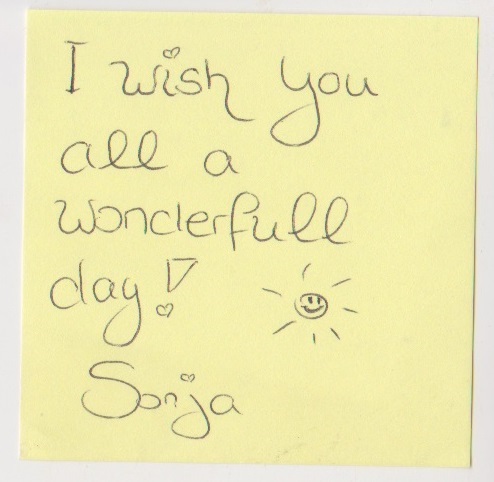 I wish you
all a
wonderfull
day!
Sonja